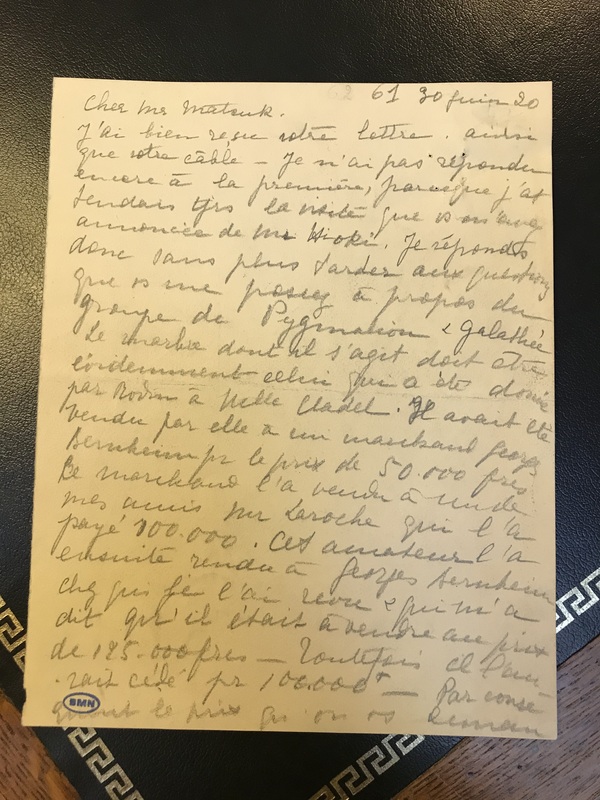 62 61 30 juin 20
Cher Mr Matsuk.
J'ai bien reçu votre lettre. ainsi
que votre câble – Je n'ai pas répondu
encore à la première, parceque j'at
tendais tjrs la visite que vs m'avez
annoncée de Mr Hioki. Je réponds
donc sans plus tarder aux questions
que vs me posez à propos du
groupe de Pygmalion & Galathée
Le marbre dont il s'agit doit être
évidemment celui qui a été donné
par Rodin à Melle Cladel. Il avait été
vendu par elle à un marchand Georges
Bernheim pr le prix de 50.000 frcs
Ce marchand l'a vendu à un de
mes amis Mr Laroche qui l'a
payé 100.000. Cet amateur l'a
ensuite rendu à Georges Bernheim
chez qui je l'ai revu & qui m'a
dit qu'il était à vendre au prix
de 125.000 frcs – Toutefois il l'au
rait cédé pr 100.000 – Par consé
quent le prix qu'on vs deman
BMN